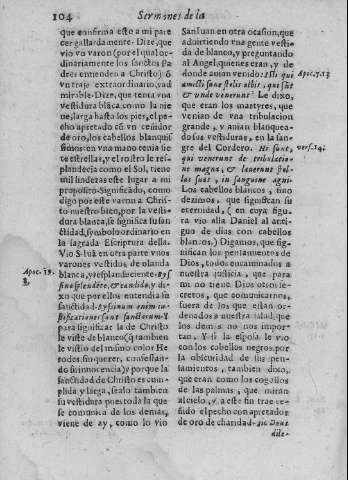 104 Sermones de la
que confirma esto a mi pare
cer gallardamente. Dize, que
vio vn varon (por el qual or-
dinariamente los sanctos Pa
dres entienden a Christo) ò
vn traje extraordinario, y ad
mirable. Dize, que tenia vna
vestidura blãca, como la nie
ne, larga hasta los pies, el pe-
cho apretado cõ vn ceñidor
de oro, los cabellos blanqui
simos en vna mano tenia sie
te estrellas, y el rostro le res-
plandecia como el Sol, tiene
mil lindezas este lugar a mi
proposito. Significado, como
digo por este varon a Chris-
to nuestro bien, por la vesti-
dura blanca, se significa su san
ctidad, symbolo ordinario en
la sagrada Escriptura della.
Vio S. Iuã en otra parte vnos
varones vestidos de olanda
blanca, y resplandeciente. Bys
sino splendẽte, & candido, y di-
xo que por ellos entendia su
sanctidad. Byssinum enim iu-
stificationes sunt sanctorum. Y
para significar la de Christo
le viste de blanco (q̃ tambien
le vistio del mismo color He
rodes, sin querer, confessan-
do su innocencia) y porque la
sanctidad de Christo es cum
plida y larga, señalo tambien
su vestidura pues toda la que
se comunica de los demas,
viene de ay, como lo vio
Apoc. 19.
8.
San Iuan en otra ocasion, que
aduirtiendo vna gente vesti-
da de blanco, y preguntando
al Angel, quienes eran, y de
donde auian venido: Isti qui
amicti sunt stolis albis, qui sũt
& vnde venerunt? Le dixo,
que eran los martyres, que
venian de vna tribulacion
grande, y auian blanquea-
do sus vestiduras, en la san-
gre del Cordero. Hi sunt,
qui venerunt de tribulatio-
ne magna, & lauerunt stol-
las suas, in sanguine agni.
Los cabellos blancos, sino
dezimos, que significan su
eternidad, (en cuya figu-
ra vio alla Daniel al anti-
guo de dias con cabellos
blancos.) Digamos, que sig-
nifican los pensamientos de
Dios, todos encaminados a
nuestra justicia, que para
mi no tiene Dios otros se-
cretos, que comunicarnos,
fuera de los que estan or-
denados a nuestra salud, que
los demas no nos impor-
tan. Y si la esposa le vio
con los cabellos negros por
la obscuridad de sus pen-
samientos, tambien dixo,
que eran como los cogollos
de las palmas, que miran
al cielo, y a este fin trae ve-
stido el pecho con apretador
de oro de charidad.
dile-
Apoc. 7. 13
vers. 14.